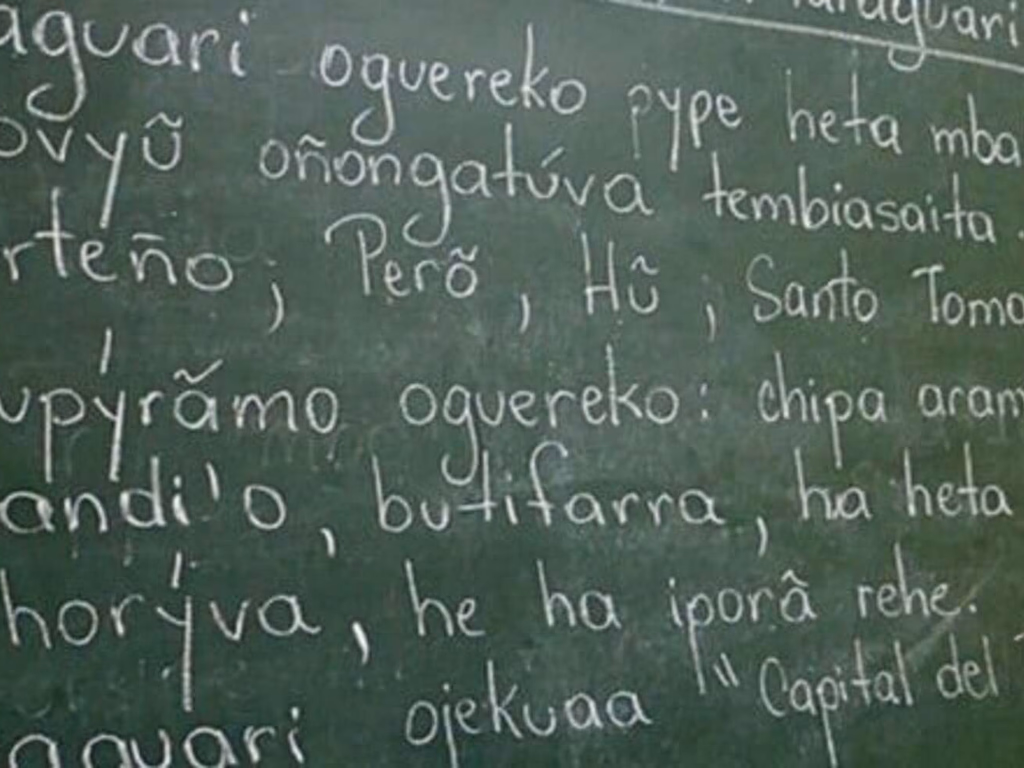 araguari
aguari oguereko pype heta mba
ovyũ oñongatúva tembiasaita.
rteño, Perõ, Hũ, Santo Toma
upýrãmo oguereko: chipa aram
andi'o, butifarra, ha heta
horýva, he ha iporâ rehe.
aguari ojekuaa "Capital del